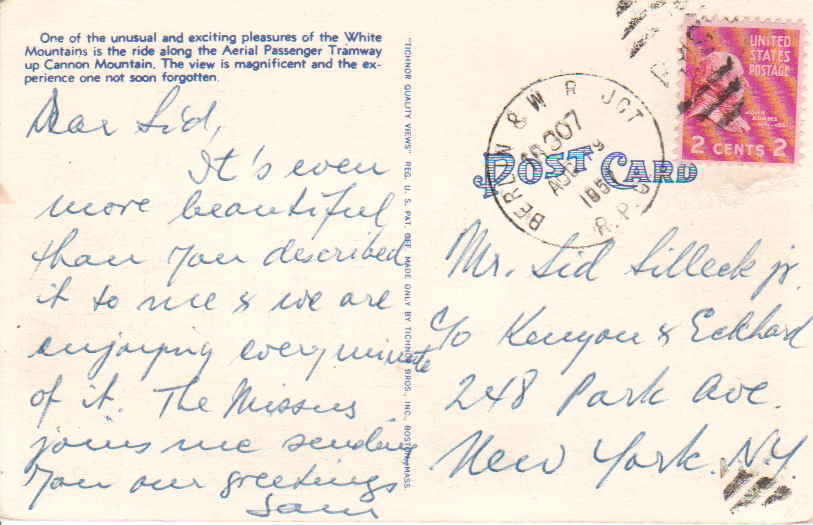 One of the unusual and exciting pleasures of the White
Mountains is the ride along the Aerial Passenger Tramway
up Cannon Mountain. The view is magnificent and the ex-
perience one not soon forgotten.
Dear Sid,
It's even
more beautiful
than you described
it to me & we are
enjoying every minute
of it. The Missus
joins me sending
you our greetings
Sam
"TICHNOR QUALITY VIEWS" REG. U. S. PAT. OFF. MADE ONLY BY TICHNOR BROS., INC., BOSTON, MASS.
POST CARD
BERLIN & W R JCT
TR 307
AUG
R.P.O
UNITED
STATES
POSTAGE
JOHN
ADAMS
2 CENTS 2
Mr. Sid Silleck jr.
c/o Kenyon & Eckhard
248 Park Ave.
New York. N.Y.